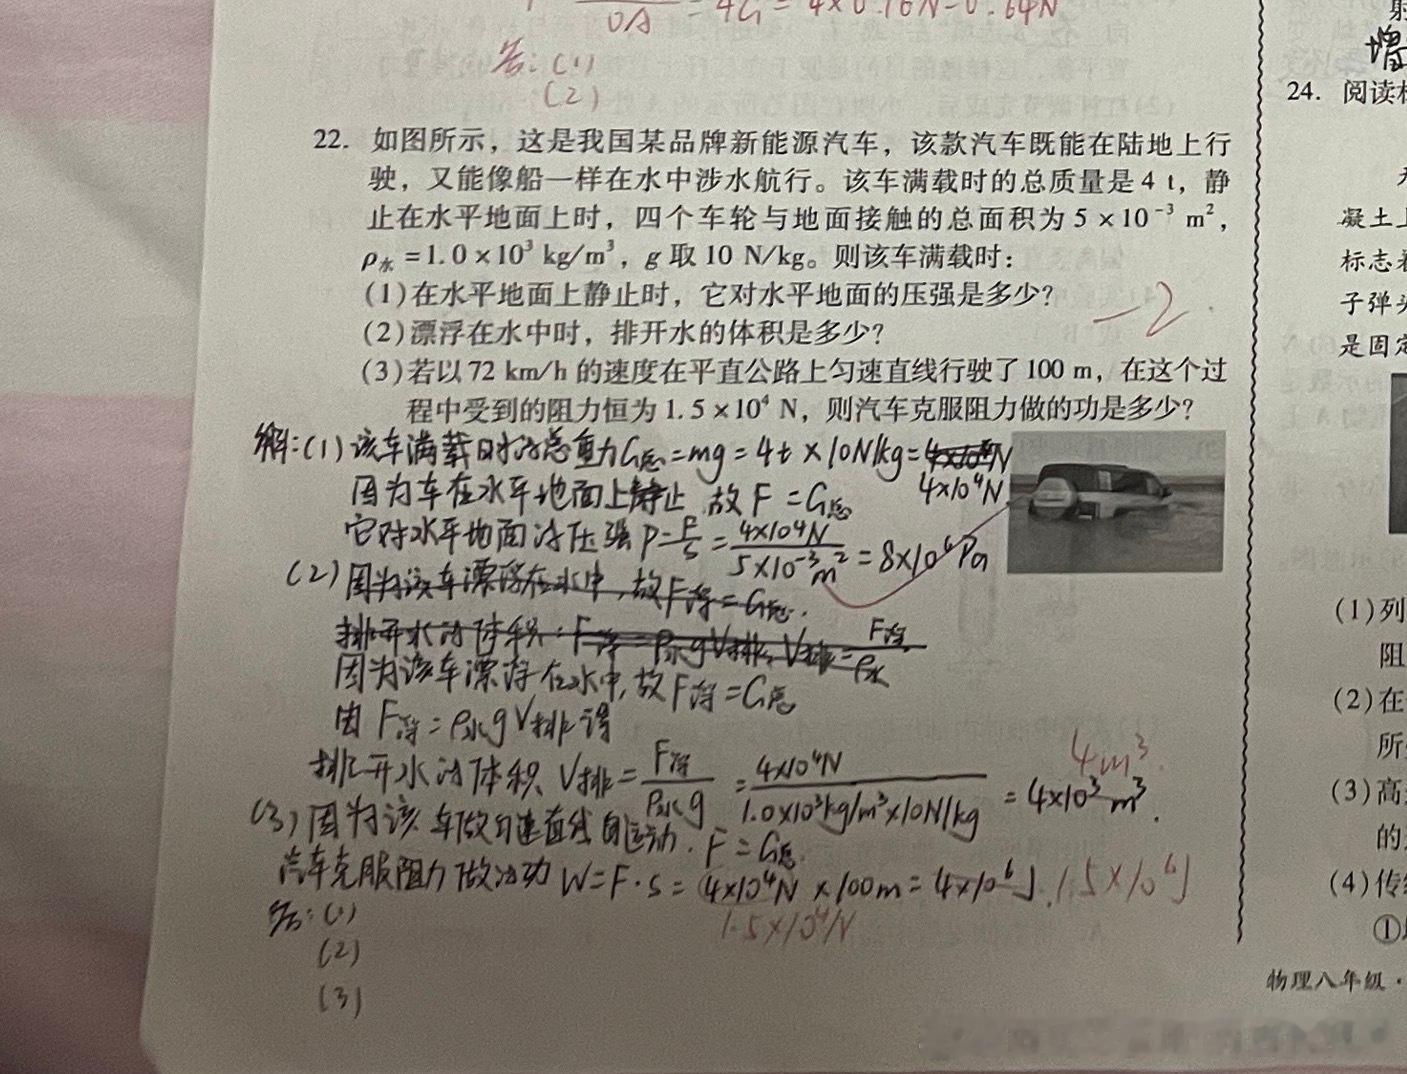 OA = 4G = 4×0.16N=0.64N
答:(1)
(2)
22. 如图所示，这是我国某品牌新能源汽车，该款汽车既能在陆地上行
驶，又能像船一样在水中涉水航行。该车满载时的总质量是 4 t，静
止在水平地面上时，四个车轮与地面接触的总面积为 5×10⁻³ m²，
ρ水=1.0×10³ kg/m³，g 取 10 N/kg。则该车满载时：
(1)在水平地面上静止时，它对水平地面的压强是多少？
-2
(2)漂浮在水中时，排开水的体积是多少？
(3)若以 72 km/h 的速度在平直公路上匀速直线行驶了 100 m，在这个过
程中受到的阻力恒为 1.5×10⁴ N，则汽车克服阻力做的功是多少？
解:(1)该车满载时的总重力G总=mg=4t×10N/kg=
4×10⁴N
因为车在水平地面上静止,故F=G总
它对水平地面的压强P=F/S=4×10⁴N/5×10⁻³m²=8×10⁶Pa
(2)因为该车漂浮在水中,故F浮=G总.
排开水的体积:F浮=ρ水gV排,V排=F浮/ρ水
因为该车漂浮在水中,故F浮=G总
由F浮=ρ水gV排得
4m³.
排开水的体积V排=F浮/ρ水g=4×10⁴N/1.0×10³kg/m³×10N/kg=4×10³m³.
(3)因为该车做匀速直线运动.F=G总.
汽车克服阻力做的功W=F·s=4×10⁴N×100m=4×10⁶J.1.5×10⁶J
1.5×10⁴N
答:(1)
(2)
(3)
增
24. 阅读
凝土
标志
子弹头
是固定
(1)列
阻
(2)在
所
(3)高
的
(4)传
①
物理八年级·